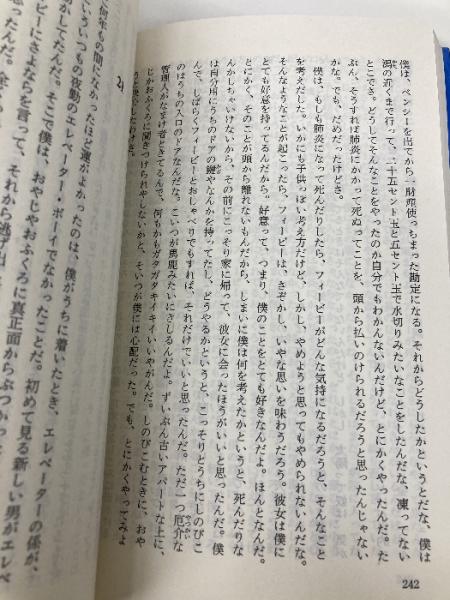 僕は、ペンシーを出てから一財産使っちまった勘定になる。それからどうしたかというとだな、僕は
潟の近くまで行って、二十五セント玉と五セント玉で水切りみたいなことをしたんだな、凍ってない
とこでさ。どうしてそんなことをやったのか自分でもわかんないんだけど、とにかくやったんだ。た
ぶん、そうすれば肺炎にかかって死ぬってことを、頭から払いのけられるだろうと思ったんじゃない
かな。でも、だめだったけどさ。
僕は、もしも肺炎になって死んだりしたら、フィービーがどんな気持になるだろうと、そんなこと
を考えだした。いかにも子供っぽい考え方だけど、しかし、やめようと思ってもやめられないんだな。
そんなようなことが起こったら、フィービーは、さぞかし、いやな思いを味わうだろう。彼女は僕に
とても好意を持ってるんだから。好意って、つまり、僕のことをとても好きなんだよ。ほんとなんだ。
とにかく、そのことが頭から離れないもんだから、しまいに僕は何を考えたかというと、死んだりな
んかしちゃいけないから、その前にこっそり家に帰って、彼女に会ったほうがいいと思ったんだ。僕
は自分用にうちのドアの鍵やなんかを持ってたし、どうやるかというと、こっそりとうちにしのびこ
んで、しばらくフィービーとおしゃべりでもすれば、それだけでいいと思ったんだ。ただ一つ厄介な
のはうちの入口のドアなんだな。こいつが馬鹿みたいにきしるんだよ。ずいぶん古いアパートな上に、
管理人がなまけ者ときてるんで、何もかもガタガタキイキイいいやがんだ。しのびこむときに、おや
じかおふくろに聞きつけられやしないかと、そいつが僕には心配だった。でも、とにかくやってみよ
うと決心したわけさ。
21
何年もの間になかったほど運がよかったのは、僕がうちに着いたとき、エレベーターの係が、
ていういつもの夜勤のエレベーター・ボーイでなかったことだ。初めて見る新しい男がエレベ
動かしてたんだ。そこで僕は、おやじやおふくろに真正面からぶつか
ービーにさよならを言って、それから逃げ出
242